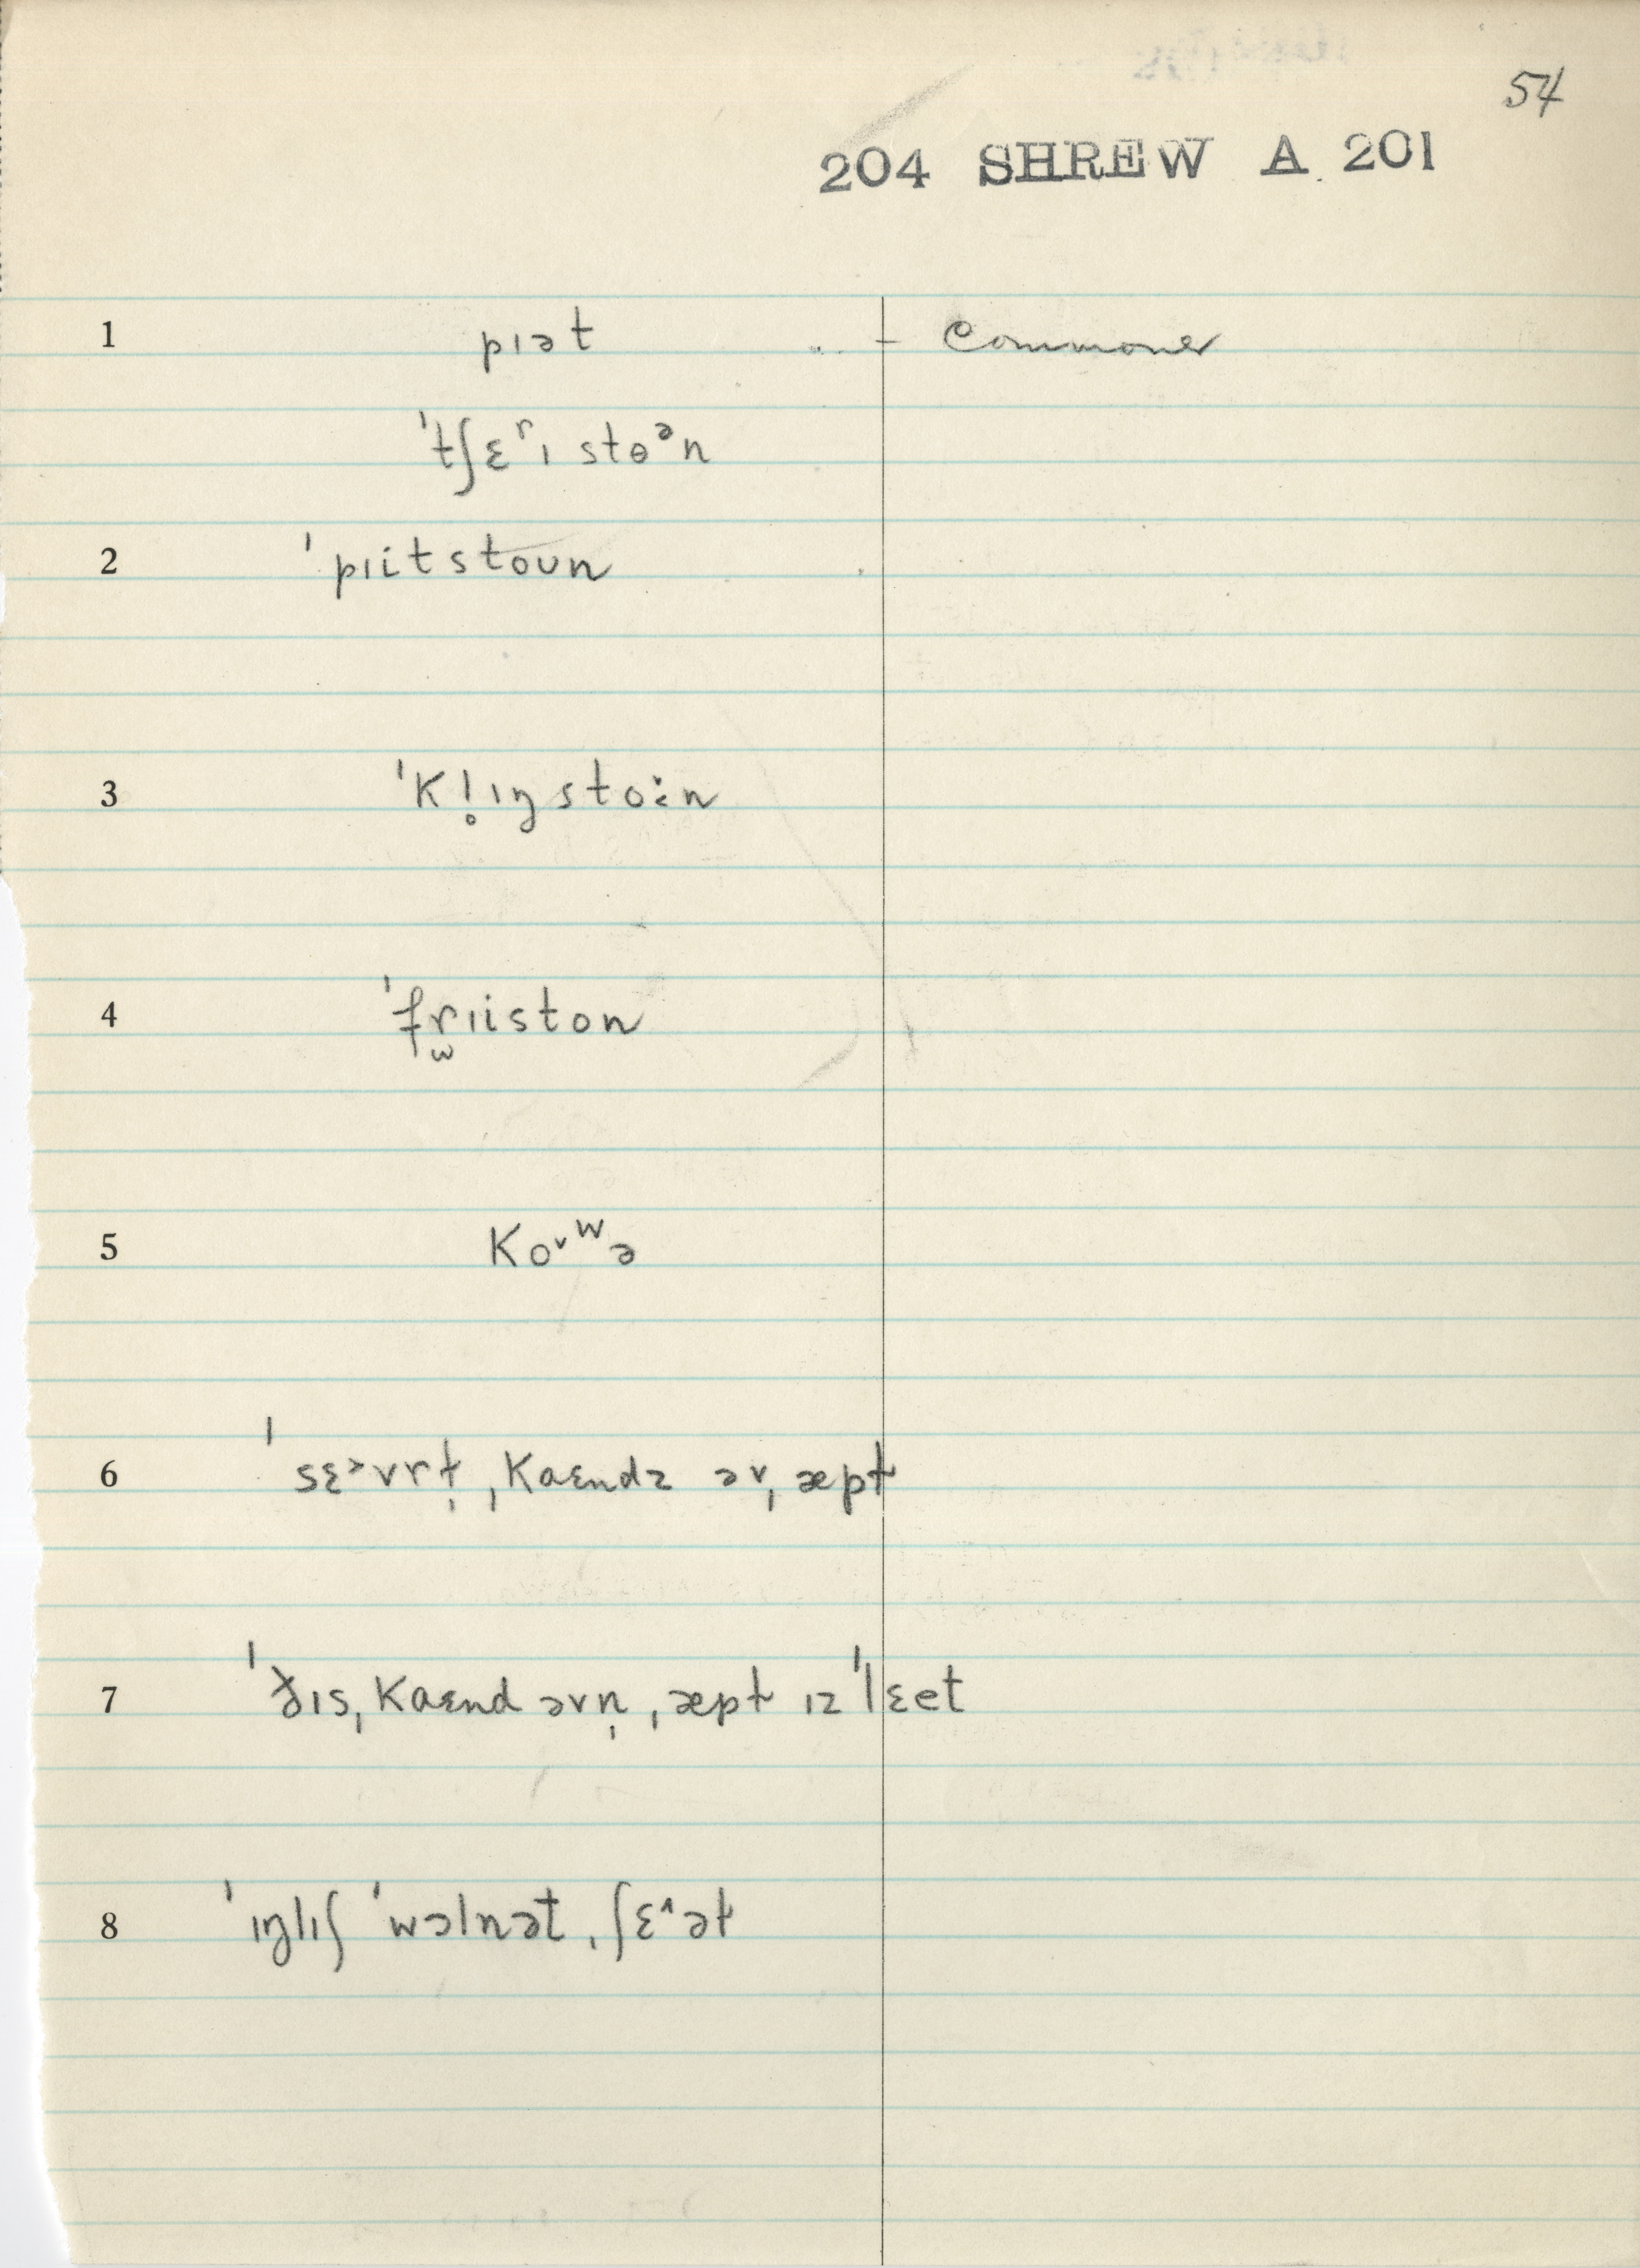 54
204 SHREW A. 201
1 pɪət – Commoner
ˈtʃɛʳɪ stɵᵊn
2 ˈpɪitstoʊn
3 ˈkl̥ɪŋstoːn
4 ˈfrɪiston
5 koᵛʷə
6 ˈsɛ˃vrt̩ ˌkaɛndz əv ˌæpt
7 ˈðɪs ˌkaɛnd əvn̩ ˌæpt ɪz ˈlɛet
8 ˈɪŋlɪʃ ˈwɔlnət ˌʃɛ^ət